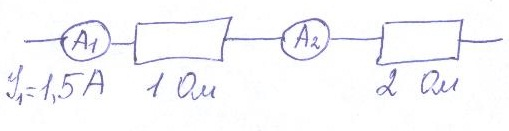 A1 A2
I₁=1,5A 1 Ом 2 Ом